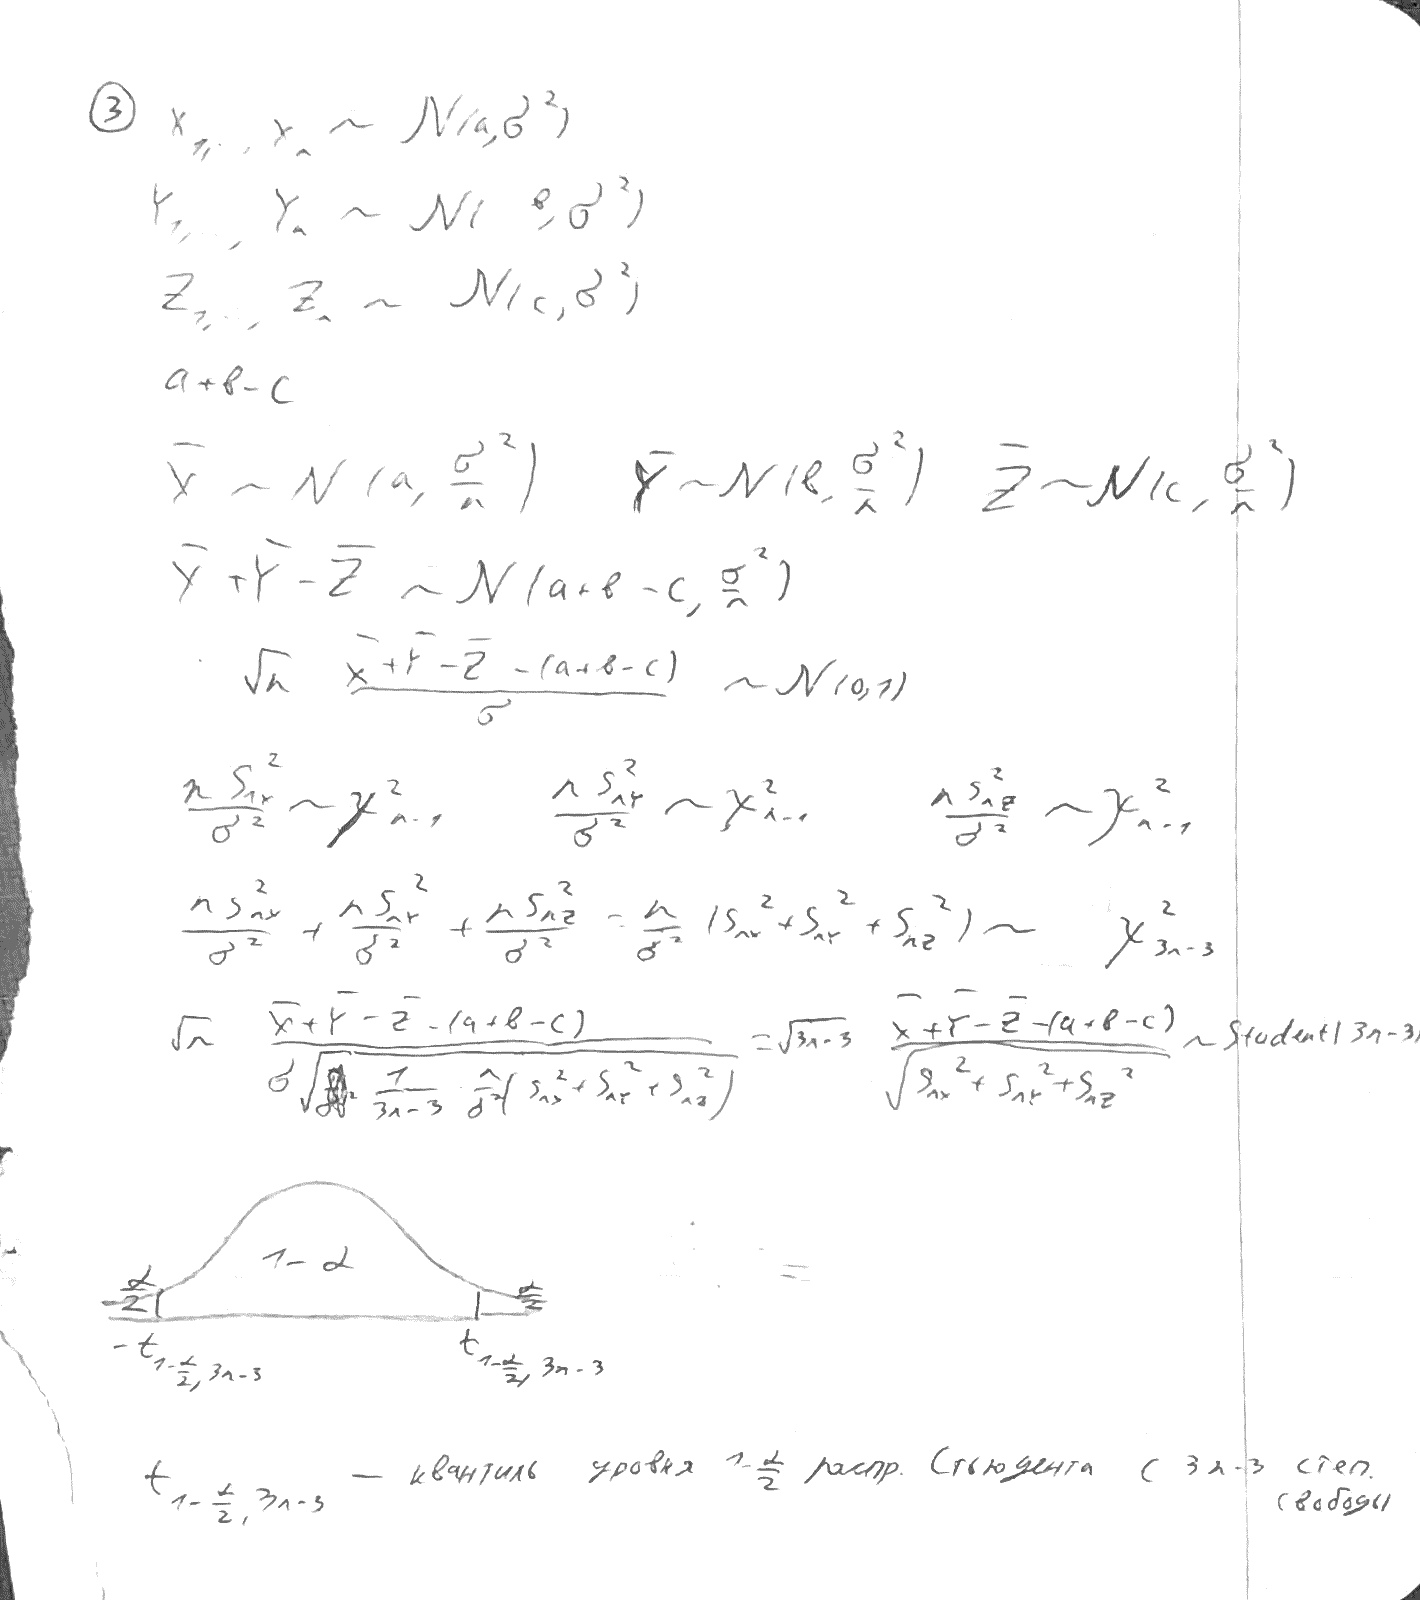 ③ X₁,..., Xₙ ~ N(a,σ²)
Y₁,..., Yₙ ~ N( в,σ²)
Z₁,..., Zₙ ~ N(c,σ²)
a+в-c
X̄ ~ N (a, σ²/n) Ȳ ~ N(в, σ²/n) Z̄ ~ N(c, σ²/n)
X̄ + Ȳ - Z̄ ~ N (a+в-c, σ²/n)
√n (X̄+Ȳ-Z̄-(a+в-c))/σ ~ N(0,1)
nSₙₓ²/σ² ~ χ²ₙ₋₁ nSₙY²/σ² ~ χ²ₙ₋₁ nSₙZ²/σ² ~ χ²ₙ₋₁
nSₙₓ²/σ² + nSₙY²/σ² + nSₙZ²/σ² = n/σ² (Sₙₓ²+SₙY²+SₙZ²) ~ χ²₃ₙ₋₃
√n (X̄+Ȳ-Z̄-(a+в-c))/(σ√(1/(3n-3) · n/σ² (Sₙₓ²+SₙY²+SₙZ²))) = √(3n-3) (X̄+Ȳ-Z̄-(a+в-c))/√(Sₙₓ²+SₙY²+SₙZ²) ~ Student(3n-3)
1-α
α/2 α/2
-t 1-α/2, 3n-3 t 1-α/2, 3n-3
=
t 1-α/2, 3n-3 — квантиль уровня 1-α/2 распр. Стьюдента с 3n-3 степ.
свободы